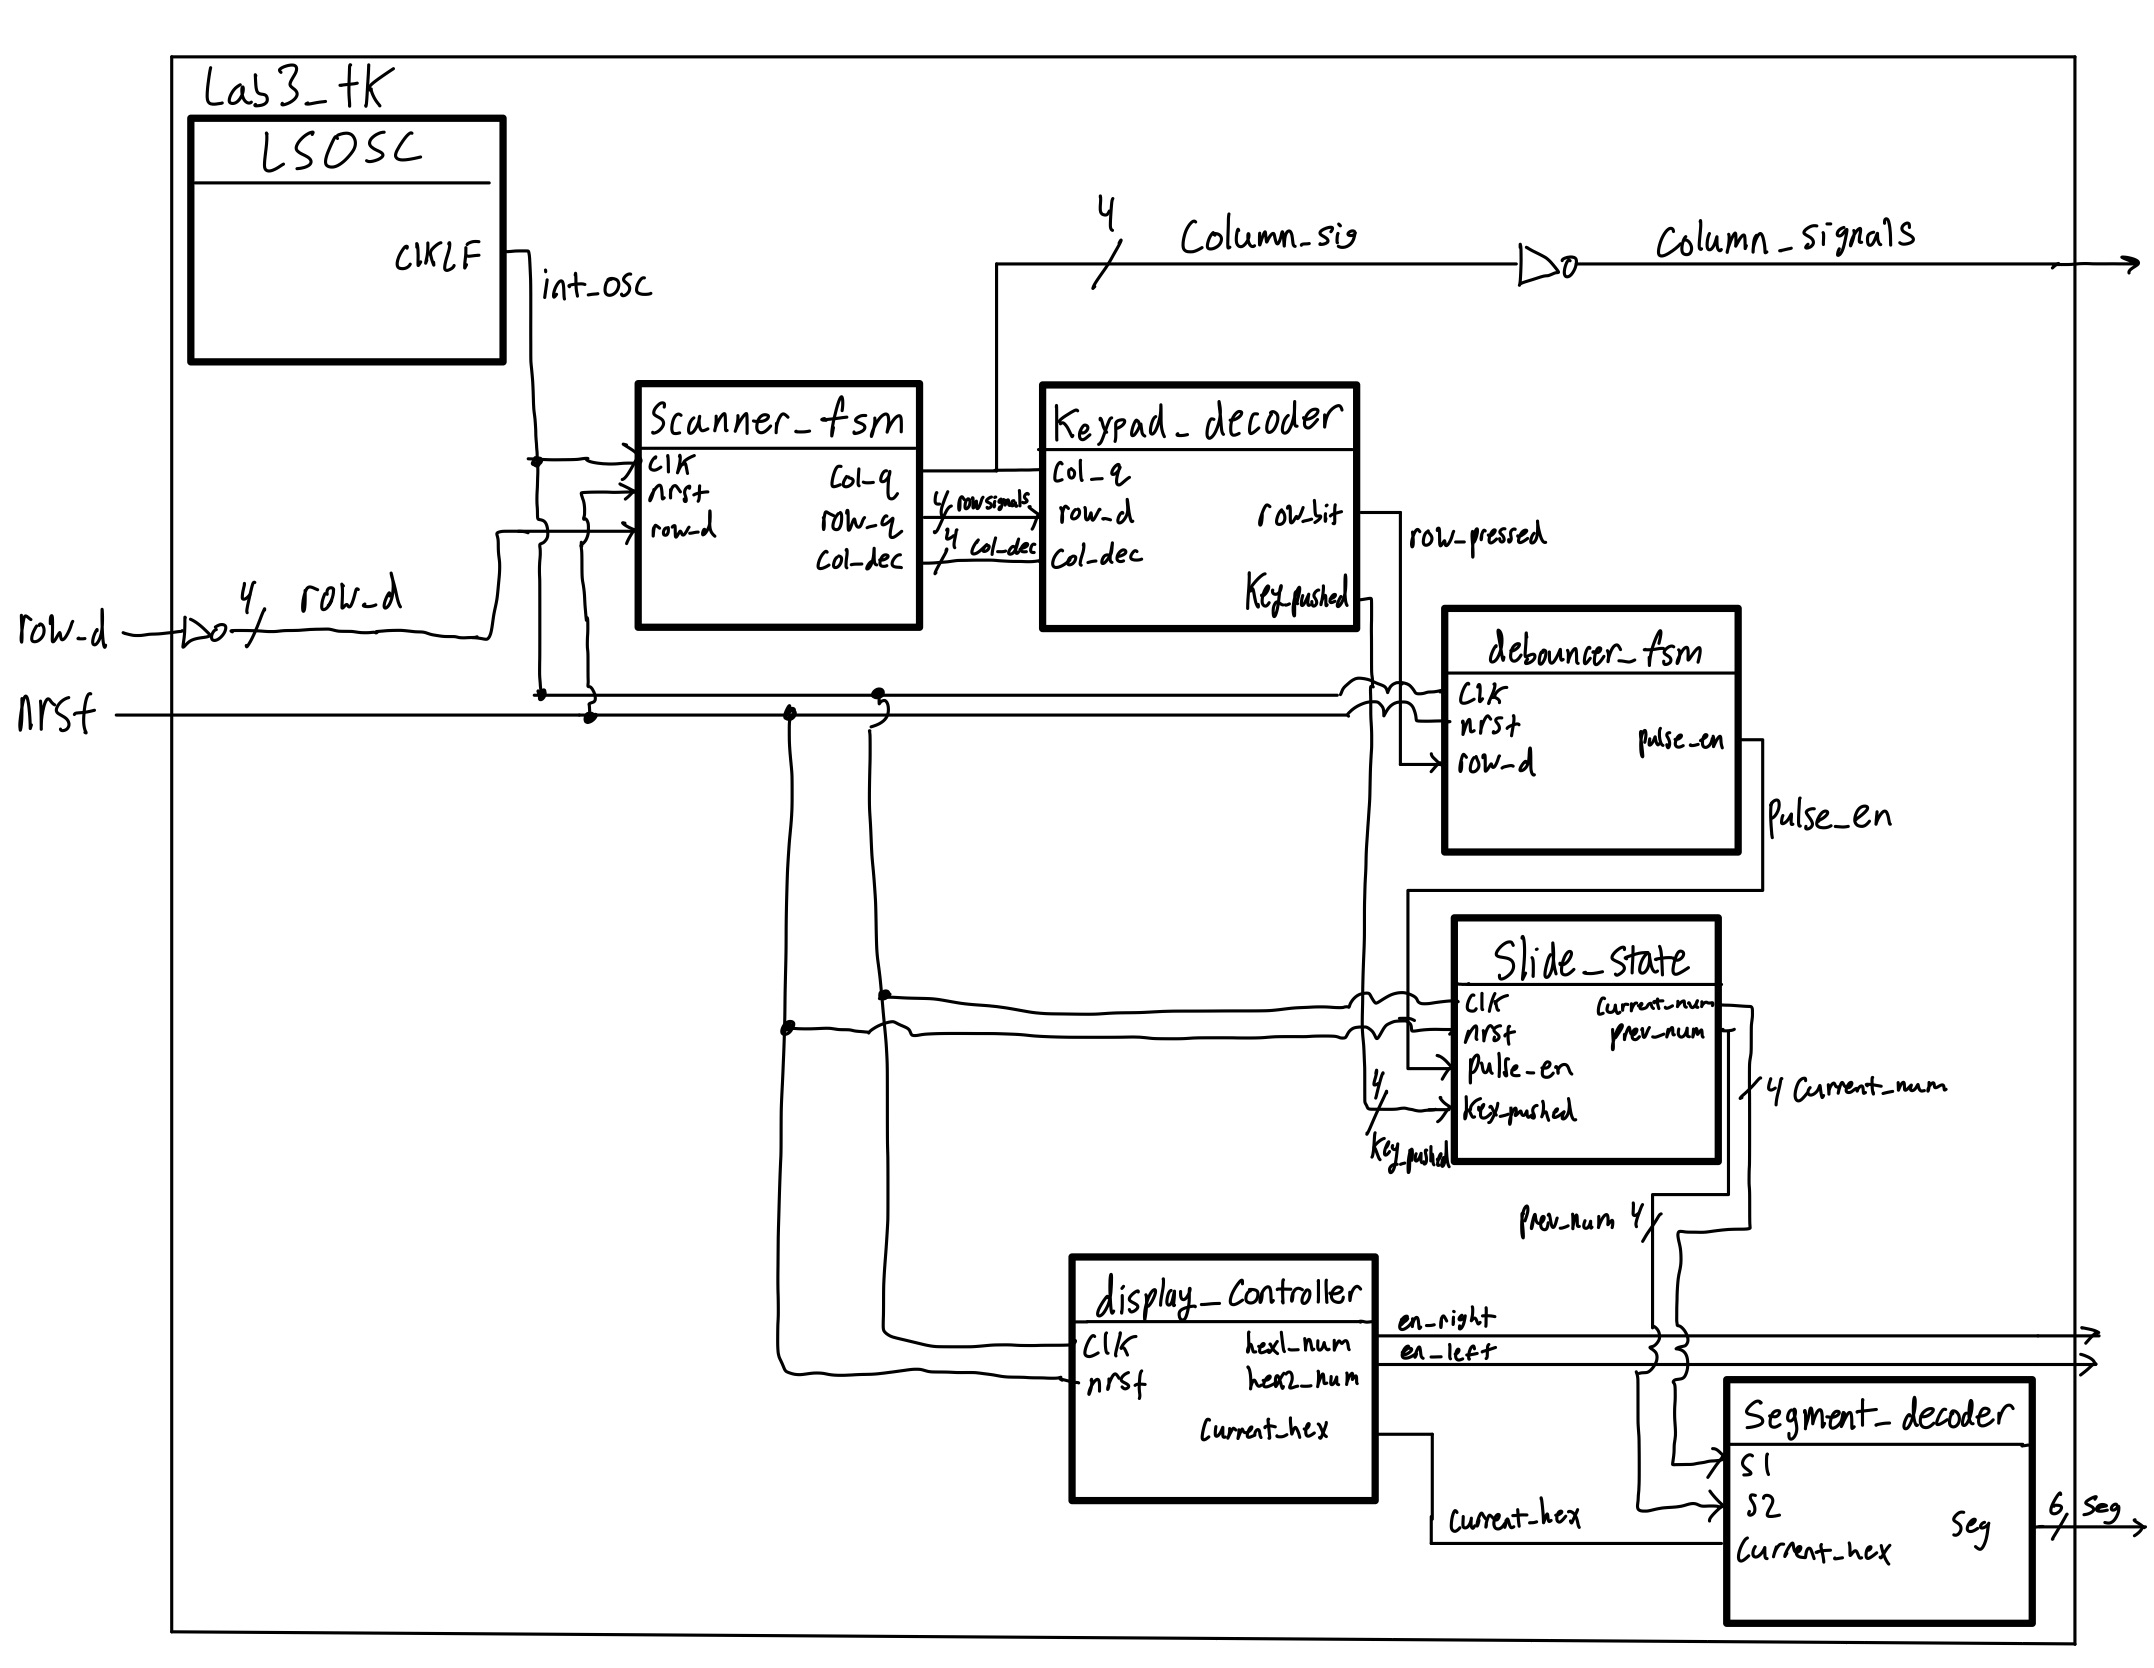 Lab3_tK
LSOSC
ClKLF
int_osc
4
Column_sig
Column_signals
Scanner_fsm
clK
nrst
row_d
Col_q
row_q
Col_dec
4 rowsignals
4 col_dec
Keypad_decoder
Col_q
row_d
Col_dec
row_bit
Key_pushed
row_pressed
row_d
4 row_d
nrst
debouncer_fsm
CLK
nrst
row_d
pulse_en
Pulse_en
Slide_state
ClK
nrst
pulse_en
Key_pushed
Current_num
prev_num
4
Key_pushed
4 Current_num
Prev_num 4
display_Controller
ClK
nrst
hex1_num
hex2_num
Current_hex
en_right
en_left
Current_hex
Segment_decoder
S1
S2
Current_hex
Seg
6 Seg